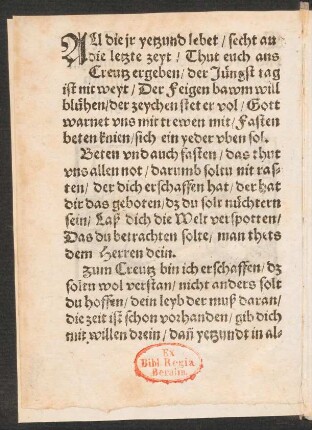 ALl die jr yetzund lebet / secht an
die letzte zeyt / Thut euch ans
Creutz ergeben / der Jüngst tag
ist nit weyt / Der Feigen bawm will
blühen / der zeychen stet er vol / Gott
warnet vns mit trewen mit / Fasten
beten knien / sich ein yeder vben sol.
Beten vnd auch fasten / das thut
vns allen not / darumb soltu nit ras-
ten / der dich erschaffen hat / der hat
dir das geboten / dz du solt nüchtern
sein / Laß dich die Welt verspotten /
Das du betrachten solte / man thets
dem Herren dein.
Zum Creutz bin ich erschaffen / dz
solen wol verstan / nicht anders solt
du hoffen / dein leyb der muß daran /
die zeit ist schon vorhanden / gib dich
mit willen drein / dañ yetzundt in al-
Ex
Bibl. Regia
Berolin.